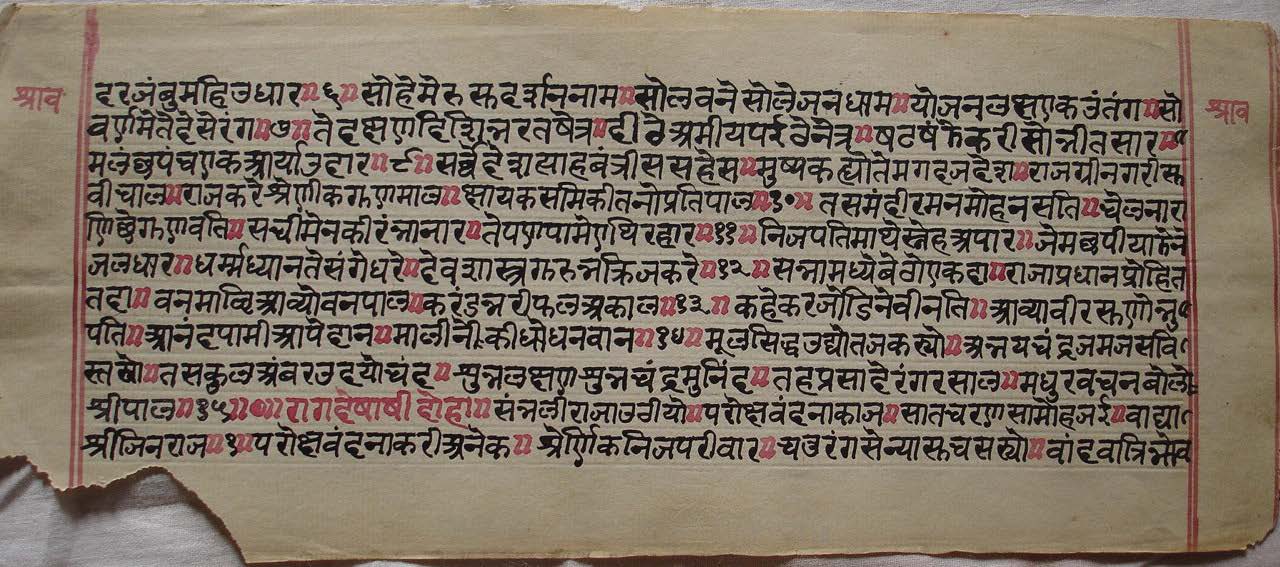 श्राव
श्राव
दरजंबुमहिउधार॥६॥सोहेमेरुसुदर्शननाम॥सोलवनेसोलेजनधाम॥योजनलक्षएकउंतंग॥सो
वर्णमेतेहेसेरंग॥७॥तेदक्षणदिशिभरतषेत्र॥दीठेअमीयपईठेनेत्र॥षटषंडेकरीसोभीतसार॥
मलेछपंचएकआर्याउदार॥८॥सर्वदेशसाहबंत्रीससहेस॥मुष्यकह्योतेमगदजदेश॥राजग्रीनगरीसु
वीचाल॥राजकरेश्रेणीकगुणमाल॥क्षायकसमिकीतनोप्रतिपाल॥१०॥तसमंदीरमनमोहनसति॥चेलनारा
णिछेगुणवति॥सचीमेनकीरंभानार॥तेपणपामेएथिरहार॥११॥निजपतिमाथेस्नेहअपार॥जेमछपीयाने
जलधार॥धर्म्मध्यानतेसंगेधरे॥देवशास्त्रगुरुभक्तिजकरे॥१२॥सभामध्येबेठोएकदा॥राजाप्रधानप्रोहित
तदा॥वनमालिआव्योवनपाल॥करंडभरीफलअकाल॥१३॥कहेकरजोडिनेवीनति॥आव्यावीरसुणोभु
पति॥आनंदपामीआपेदान॥मालीनेकीधोधनवान॥१४॥मूलसिद्धउद्योतजकस्यो॥अभयचंद्रजमजसवि
स्तस्यो॥तसकुलअंबरउदयोचंद॥शुभलक्षणशुभचंद्रमुनिंद॥तहप्रसादेरंगरसाल॥मधुरवचनबोले
श्रीपाल॥१५॥रागदेषाषीदोहा॥संभलीराजाउठीयो॥परोक्षवंदनाकाज॥सातचरणसामोहजई॥वाद्या
श्रीजिनराज॥१॥परोक्षवंदनाकरीअनेक॥श्रेणिकनिजपरीवार॥चउरंगसेन्यासुचसस्यो॥वांदवात्रिभोव